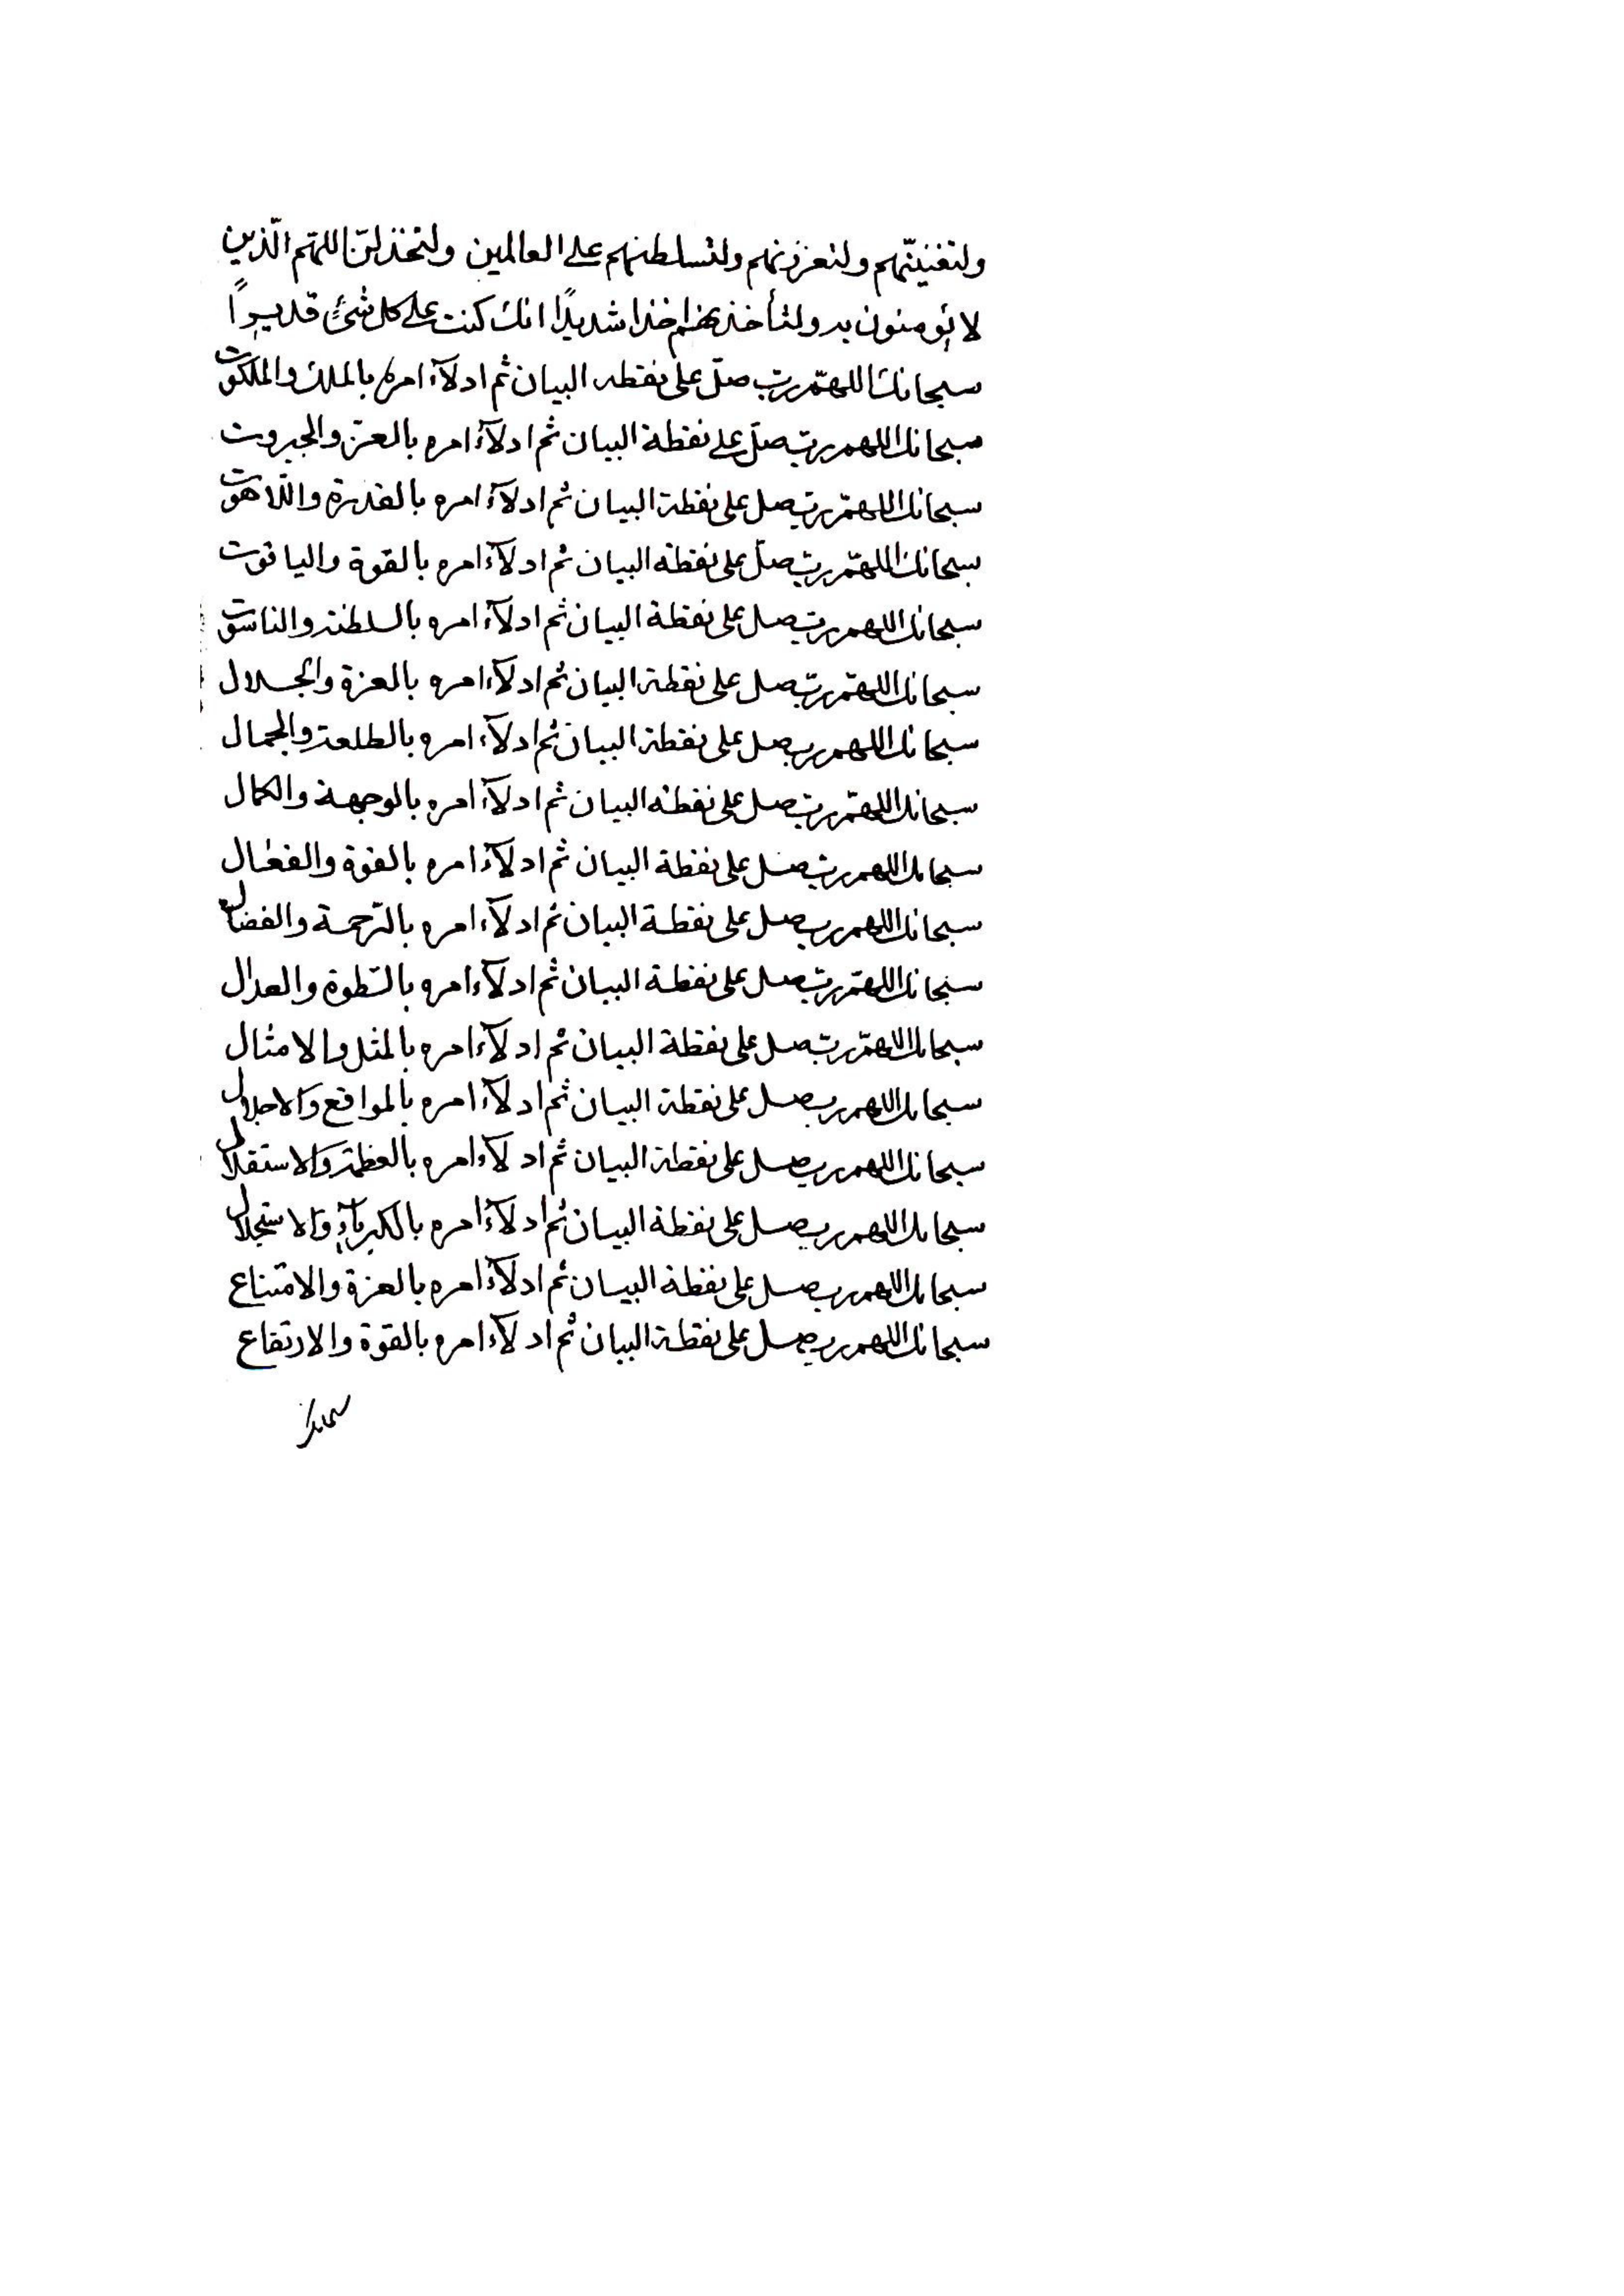 ولتغنينّهم ولتعززنهم ولتسلطنهم على العالمين ولتخذلنّ اللهم الّذين
لا يؤمنون به ولتأخذنهم اخذا شديدًا انك كنت على كل شئ قديرًا
سبحانك اللهمّ رب صلّ على نقطه البيان ثم ادلآء امره بالملك والملكوت
سبحانك اللهم رب صلّ على نقطة البيان ثم ادلآء امره بالعز والجبروت
سبحانك اللهمّ رب صل على نقطة البيان ثم ادلآء امره بالقدرة واللاهوت
سبحانك اللهمّ رب صلّ على نقطة البيان ثم ادلآء امره بالقوة والياقوت
سبحانك اللهم رب صل على نقطة البيان ثم ادلآء امره بالسلطنة والناسوت
سبحانك اللهمّ ربّ صل على نقطة البيان ثم ادلآء امره بالعزة والجلال
سبحانك اللهم رب صل على نقطة البيان ثم ادلآء امره بالطلعة والجمال
سبحانك اللهمّ رب صل على نقطة البيان ثم ادلآء امره بالوجهة والكمال
سبحانك اللهم رب صل على نقطة البيان ثم ادلآء امره بالقوة والفعال
سبحانك اللهم رب صل على نقطة البيان ثم ادلآء امره بالرّحمة والفضال
سبحانك اللهمّ رب صل على نقطة البيان ثم ادلآء امره بالسّطوة والعدال
سبحانك اللهمّ ربّ صل على نقطة البيان ثم ادلآء امره بالمثل والامثال
سبحانك اللهم رب صل على نقطة البيان ثم ادلآء امره بالمواقع والاجلال
سبحانك اللهم رب صل على نقطة البيان ثم ادلآء امره بالعظمة والاستقلال
سبحانك اللهم رب صل على نقطة البيان ثم ادلآء امره بالكبريآء والاستجلال
سبحانك اللهم رب صل على نقطة البيان ثم ادلآء امره بالعزة والامتناع
سبحانك اللهم رب صل على نقطة البيان ثم ادلآء امره بالقوة والارتفاع
سبحانك